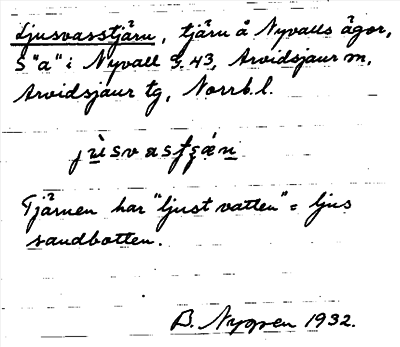 Ljusvasstjärn, tjärn å Nyvalls ägor,
S "a" i Nyvall g. 43, Arvidsjaur sn,
Arvidsjaur tg, Norrb. l.
Tjärnen har "ljust vatten" = ljus
sandbotten.
B. Nyppen 1932.